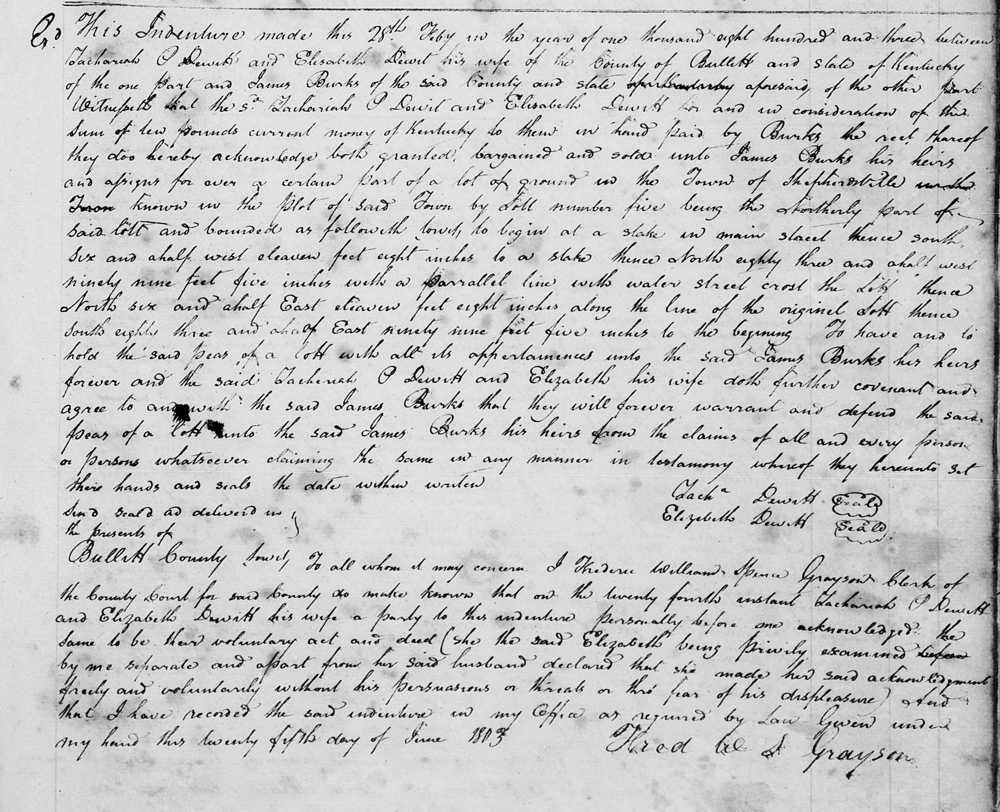 Exd. This Indenture made this 28th Feby in the year of one thousand eight hundred and three between
Zachariah P Dewitt and Elizabeth Dewit his wife of the County of Bullitt and state of Kentucky
of the one part and James Burks of the said County and state aforesaid, of the other part
Witnesseth that the sd. Zachariah P Dewit and Elisabeth Dewitt for and in consideration of the
Sum of ten pounds current money of Kentucky to them in hand paid by Burks the rect. thareof
they doo hereby acknowledge both granted, bargained and sold unto James Burks his heirs
and assigns for ever a certain part of a lot of ground in the Town of Shepherdsville in the
Town known in the Plot of said Town by Lott number five being the Northerly part of
said lott and bounded as followith towit, to begin at a stake in main street thence south
Six and ahalf west eleaven feet eight inches to a stake thence North eighty three and ahalf west
ninety nine feet five inches with a parrallel line with water street crost the Lott thence
North six and ahalf East eleaven feet eight inches along the line of the originel Lott thence
South eighty three and ahalf East ninety nine feet five inches to the begining To have and to
hold the said peas of a lott with all its appertainences unto the said James Burks his heirs
forever and the said Zacheriah P Dewitt and Elizabeth his wife doth further covenant and
agree to and with the said James Burks that they will forever warrant and defend the said
peas of a lott unto the said James Burks his heirs from the claims of all and every person
or persons whatsoever claiming the same in any manner in testamony whereof they hereunto set
there hands and seals the date within writen
Sind seald ad deliverd in
the presents of
Zacha Dewitt Seald
Elizebeth Dewitt Seald
Bullitt County Towit, To all whom it may concern I Frederic William Spence Grayson Clerk of
the County Court for said County do make known that on the twenty fourth instant Zachariah P Dewitt
and Elizabeth Dewitt his wife a party to this indenture personally before me acknowledged the
same to be their voluntary act and deed (she the said Elizabeth being privily examined before
by me separate and apart from her said husband declared that she made her said acknowledgment
freely and voluntarily without his persuasions or threats or thro' fear of his displeasure) And
that I have recorded the said indenture in my office as required by Law Given under
my hand this twenty fifth day of June 1803
Fred W S Grayson